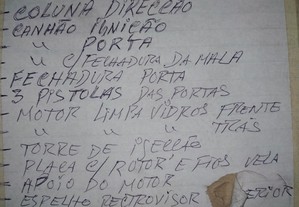 COLUNA DIRECÇÃO
CANHÃO IGNIÇÃO
" PORTA
" C/FECHADURA DA MALA
FECHADURA PORTA
3 PISTOLAS DAS PORTAS
- MOTOR LIMPA VIDROS FRENTE
" " " TRÁS
- TORRE DE
- PLACA C/ ROTOR E FIOS VELA
- APOIO DO MOTOR
- ESPELHO RECTROVISOR